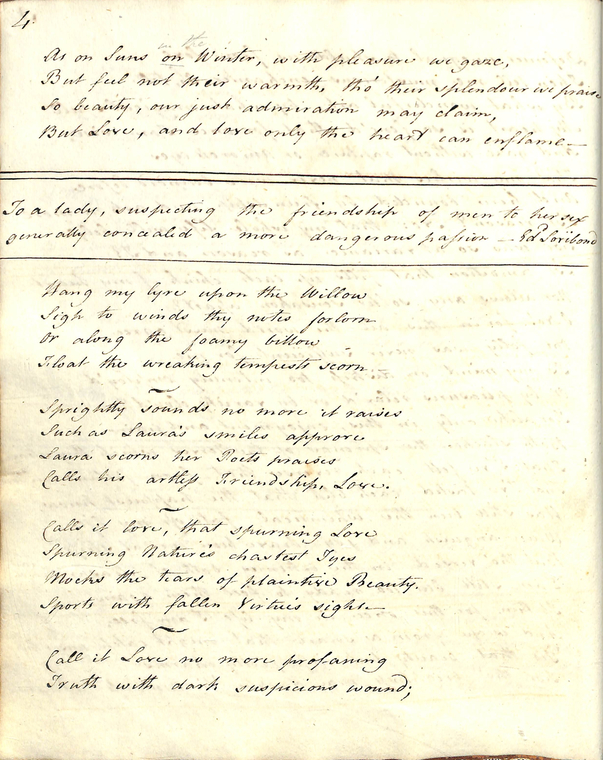 4
in the
As on Suns on Winter, with pleasure we gaze,
But feel not their warmth, tho' their splendour we praise
So beauty, our just admiration may claim,
But Love, and love only the heart can enflame—
To a lady, suspecting the friendship of men to her sex
generally concealed a more dangerous passion — Ed
Hang my lyre upon the Willow
Sigh to winds thy notes forlorn
Or along the foamy billow
Float the wreaking tempests scorn
Sprightly sounds no more it raises
Such as Laura's smiles approve
Laura scorns her Poets praises
Calls his artless Friendship, Love.
Calls it love, that spurning Love
Spurning Nature's chastest Tyes
Mocks the tears of plaintive Beauty.
Sports with fallen Virtue's sighs—
Call it Love no more profaning
Truth with dark suspicious wound;